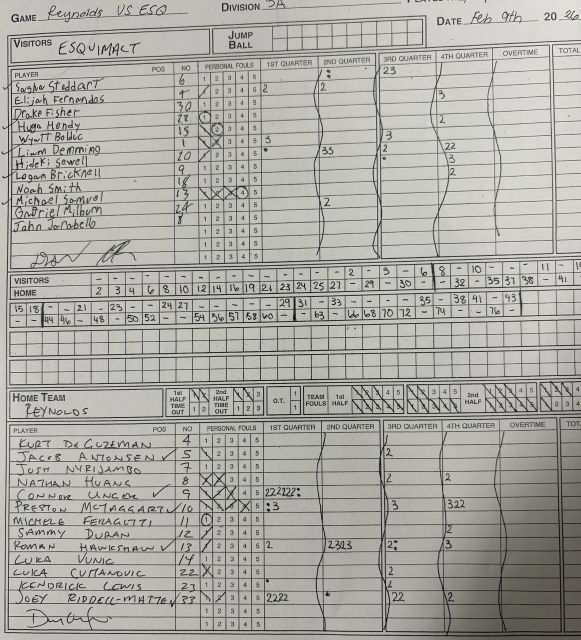 GAME Reynolds VS ESQ DIVISION 3A
DATE Feb 9th 20 26
VISITORS ESQUIMALT
JUMP BALL
PLAYER POS NO PERSONAL FOULS 1ST QUARTER 2ND QUARTER 3RD QUARTER 4TH QUARTER OVERTIME TOTAL
Stoddart 6 1 2 3 4 5 : 23
Elijah Fernandos 1 2 3 4 5 2 2
Drake Fisher 30 1 2 3 4 5 3
Hugo Hendy 1 2 3 4 5
Wyatt Bolduc 15 1 2 3 4 5 2
Liam Demming 1 1 2 3 4 5 3 3
Hideki Sewell 20 1 2 3 4 5 33 2 22
Logan Bricknell 9 1 2 3 4 5 3
Noah Smith 1 2 3 4 5 2
Michael Samuel 13 1 2 3 4 5
Gabriel Milburn 1 2 3 4 5 2
8 1 2 3 4 5
VISITORS - - - - - - - - - - - - - - - - 2 - 3 - 6 8 - 10 - - - 11 -
HOME 2 3 4 6 8 10 12 14 16 19 21 23 24 25 27 - 29 - 30 - - 32 - 35 37 38 - 41
15 18 - - 21 - 23 - - 24 27 - - - - - 29 31 - 33 - - - - 35 - 38 41 - 43
- - 44 46 - 48 - 50 52 - - 54 56 57 58 60 - - 63 - 66 68 70 72 - 74 - - 76 -
HOME TEAM
REYNOLDS
1ST HALF TIME OUT 1 2
2ND HALF TIME OUT 1 2 3
O.T. 1 1
TEAM FOULS 1ST HALF 2ND HALF
PLAYER NO PERSONAL FOULS 1ST QUARTER 2ND QUARTER 3RD QUARTER 4TH QUARTER OVERTIME TOTAL
KURT DE GUZEMAN 4 1 2 3 4 5
JACOB ANTONSEN 5 1 2 3 4 5 2
JOSH NYRIJAMBO 7 1 2 3 4 5
NATHAN HUANG 8 1 2 3 4 5 2 2
CONNOR UNGER 9 1 2 3 4 5 222222:
PRESTON MCTAGGART 10 1 2 3 4 5 :3 3 322
MICHELE FERAGOTTI 11 1 2 3 4 5
SAMMY DURAN 12 1 2 3 4 5 2
ROMAN HAWKSHAW 13 1 2 3 4 5 2 2323 2: 3
LUKA VUNIC 14 1 2 3 4 5
LUKA CUTTANOVIC 22 1 2 3 4 5 2
KENDRICK LEWIS 23 1 2 3 4 5 2
JOEY RIDDELL-MATTE 33 1 2 3 4 5 2222 22 2
1 2 3 4 5